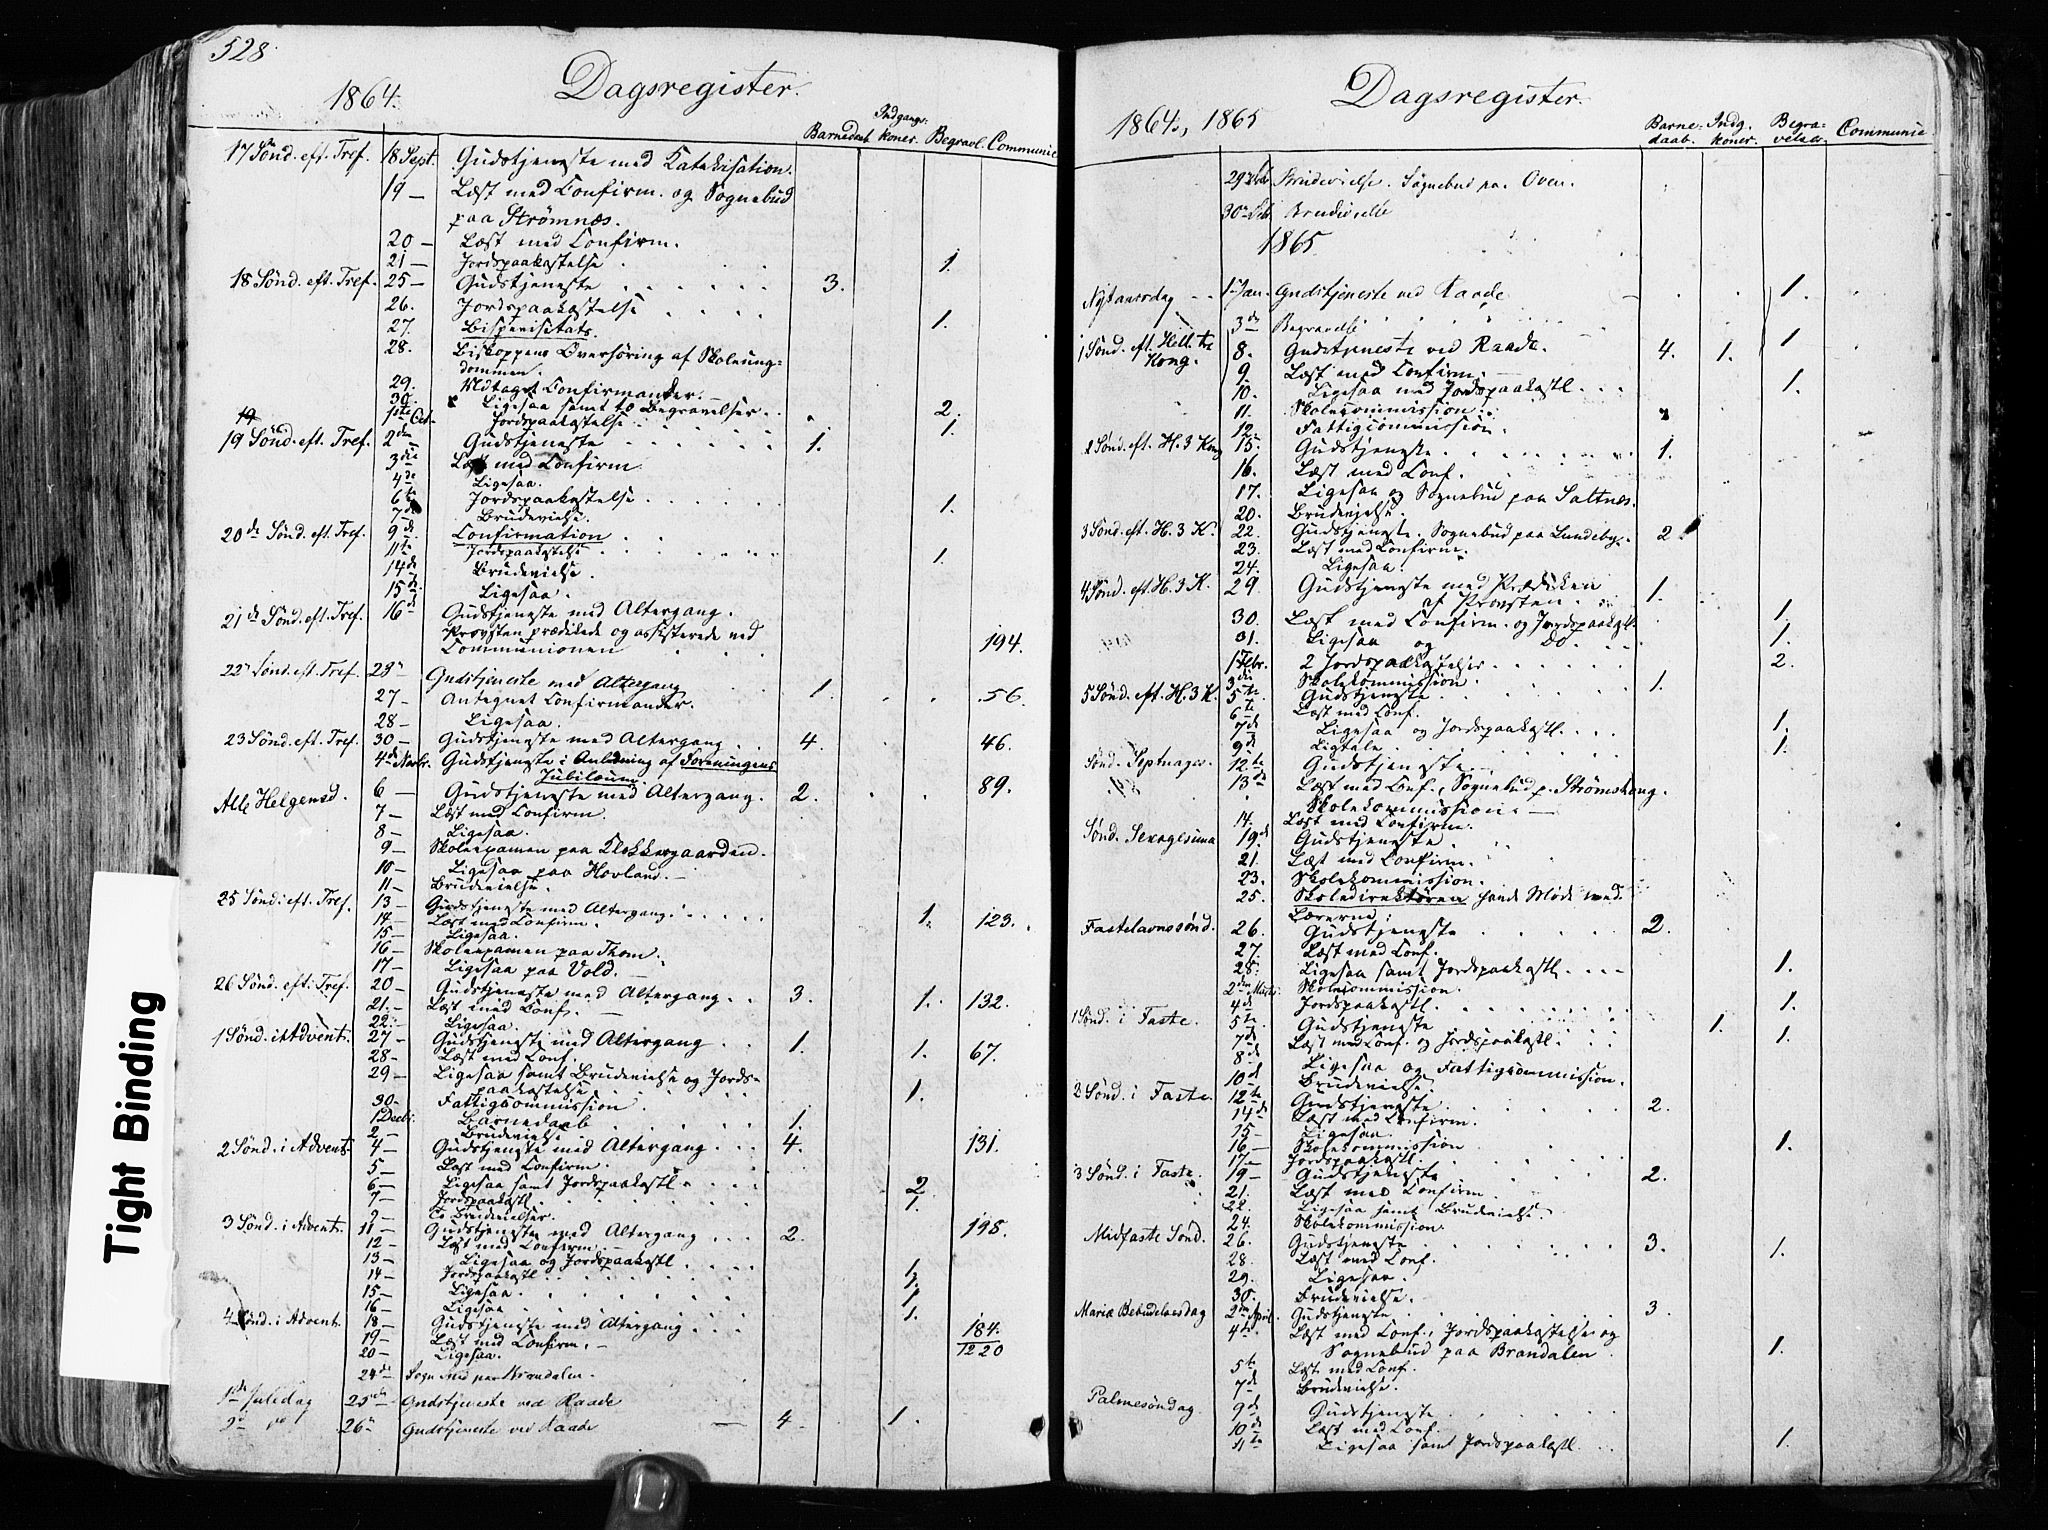 528
1864.
Dagsregister.
Barnedaab Indgangs-koner. Begravl. Communic
17 Sønd. eft. Tref. 18 Sept. Gudstjeneste med Katekisation.
19 — Læst med Confirm. og Sognebud
paa Strømnæs.
20 — Læst med Confirm.
21 — Jordspaakastelse 1.
18 Sønd. eft. Tref. 25 — Gudstjeneste 3.
26. Jordspaakastelse
27. Bispevisitats. 1.
28. Biskoppens Overhøring af Skoleung-
dommen.
29. Modtaget Confirmander.
30. Ligesaa samt to Begravelser 2.
19 1ste Oct. Jordspaakastelse 1.
19 Sønd. eft. Tref. 2den Gudstjeneste 1.
3die Læst med Confirm.
4de Ligesaa.
6te Jordspaakastelse 1.
7de Brudevielse.
20de Sønd. eft. Tref. 9de Confirmation
11te Jordspaakastelse 1.
14de Brudevielse.
15de Ligesaa.
21de Sønd. eft. Tref. 16de Gudstjeneste med Altergang.
Provsten prædikede og assisterede ved
Communionen 194.
22 Sønd. eft. Tref. 23 Gudstjeneste med Altergang 1. 56.
27 — Antegnet Confirmander.
28 — Ligesaa.
23 Sønd. eft. Tref. 30 — Gudstjeneste med Altergang 4. 46.
4de Novbr. Gudstjeneste i Anledning af Foreningens
Jubilæum.
Alle Helgensd. 6 — Gudstjeneste med Altergang. 2. 89.
7 — Læst med Confirm.
8 — Ligesaa.
9 — Skoleexamen paa Klokkergaarden.
10 — Ligesaa paa Hovland.
11 — Brudevielse.
25 Sønd. eft. Tref. 13 — Gudstjeneste med Altergang. 1. 123.
14 — Læst med Confirm.
15 — Ligesaa.
16 — Skoleexamen paa Thom.
17 — Ligesaa paa Vold.
26 Sønd. eft. Tref. 20 — Gudstjeneste med Altergang 3. 1. 132.
21. — Læst med Conf.
22. — Ligesaa.
1 Sønd. i Advent. 27 — Gudstjeneste med Altergang 1. 1. 67.
28 — Læst med Conf.
29 — Ligesaa samt Brudevielse og Jords-
paakastelse 1.
30 — Fattigcommission.
1 Decbr. Barnedaab 1.
2 — Brudevielse
2 Sønd. i Advent. 4 — Gudstjeneste med Altergang 4. 131.
5 — Læst med Confirm.
6 — Ligesaa samt Jordspaakastl. 2
7 — Jordspaakastl. 1.
9 — To Brudevielser.
3 Sønd. i Advent. 11 — Gudstjeneste med Altergang 2. 198.
12 — Læst med Confirm.
13 — Ligesaa og Jordspaakastl. 1.
14 — Jordspaakastl. 1.
15 — Ligesaa. 1.
16 — Ligesaa 1.
4 Sønd. i Advent. 18 — Gudstjeneste med Altergang 184.
19 — Læst med Confirm. 1220
20 — Ligesaa.
24de Sognebud paa Brandalen.
1ste Juledag 25de Gudstjeneste ved Raade
2 do 26 Gudstjeneste ved Raade 4. 1.
Tight Binding
1864., 1865
Dagsregister.
Barne-daab. Indg. koner. Begra-velser. Communic.
29 Brudevielse. Sognebud paa Oven.
30 Brudevielse
1865.
Nytaarsdag 1 Jan. Gudstjeneste ved Raade 1.
3de Begravelse
1 Sønd. eft. Hell. tre Kong. 8. Gudstjeneste ved Raade. 4. 1. 1.
9. Læst med Confirm.
10. Ligesaa med Jordspaakastl. 1.
11. Skolecommission.
12. Fattigcommission.
2 Sønd. eft. H. 3 Kong 15. Gudstjeneste 1.
16. Læst med Conf.
17. Ligesaa og Sognebud paa Saltnæs.
20. Brudevielse.
3 Sønd. eft. H. 3 K. 22. Gudstjeneste. Sognebud paa Lundeby. 2.
23. Læst med Confirm.
24. Ligesaa.
4 Sønd. eft. H. 3 K. 29. Gudstjeneste med Prædiken
af Provsten. 1.
30. Læst med Confirm. og Jordspaakastl. 1.
31. Ligesaa og Do. 1.
1 Febr. 2 Jordspaakastelser 2.
3die Skolekommission.
5 Sønd. eft. H. 3 K. 5te Gudstjeneste 1.
6te Læst med Conf.
7de Ligesaa og Jordspaakastl. 1.
9de Ligtale 1.
Sønd. Septuages. 12te Gudstjeneste
13de Læst med Conf., Sognebud p. Strømshaug.
Skolekommission.
14. Læst med Confirm.
Sønd. Sexagesima 19de Gudstjeneste
21. Læst med Confirm.
23. Skolekommission.
25. Skoledirektøren havde Møde med
Lærerne.
Fastelavnssønd. 26. Gudstjeneste 2.
27. Læst med Conf.
28. Ligesaa samt Jordspaakastl. 1.
2den Marts. Skolecommission.
4de Jordspaakastl. 1.
1 Sønd. i Faste. 5te Gudstjeneste 1.
7de Læst med Conf. og Jordspaakastl. 1.
8de Ligesaa og Fattigcommission.
10de Brudevielse.
2 Sønd. i Faste. 12te Gudstjeneste 2.
14de Læst med Confirm.
15 — Ligesaa.
16 — Skolekommission 1.
17 — Jordspaakastl.
3 Sønd. i Faste. 19 — Gudstjeneste 2.
21. Læst med Confirm
22. Ligesaa samt Brudevielse.
24. Skolekommission.
Midfaste Sønd. 26. Gudstjeneste 3. 1.
28. Læst med Conf.
29. Ligesaa.
30. Brudevielse.
Mariæ Bebudelsesdag 2den April. Gudstjeneste 3.
4de Læst med Conf., Jordspaakastelse og
Sognebud paa Brandalen 1.
5te Læst med Conf.
7de Brudevielse.
Palmesøndag 9de Gudstjeneste
10de Læst med Conf.
11te Ligesaa samt Jordspaakastl. 1.